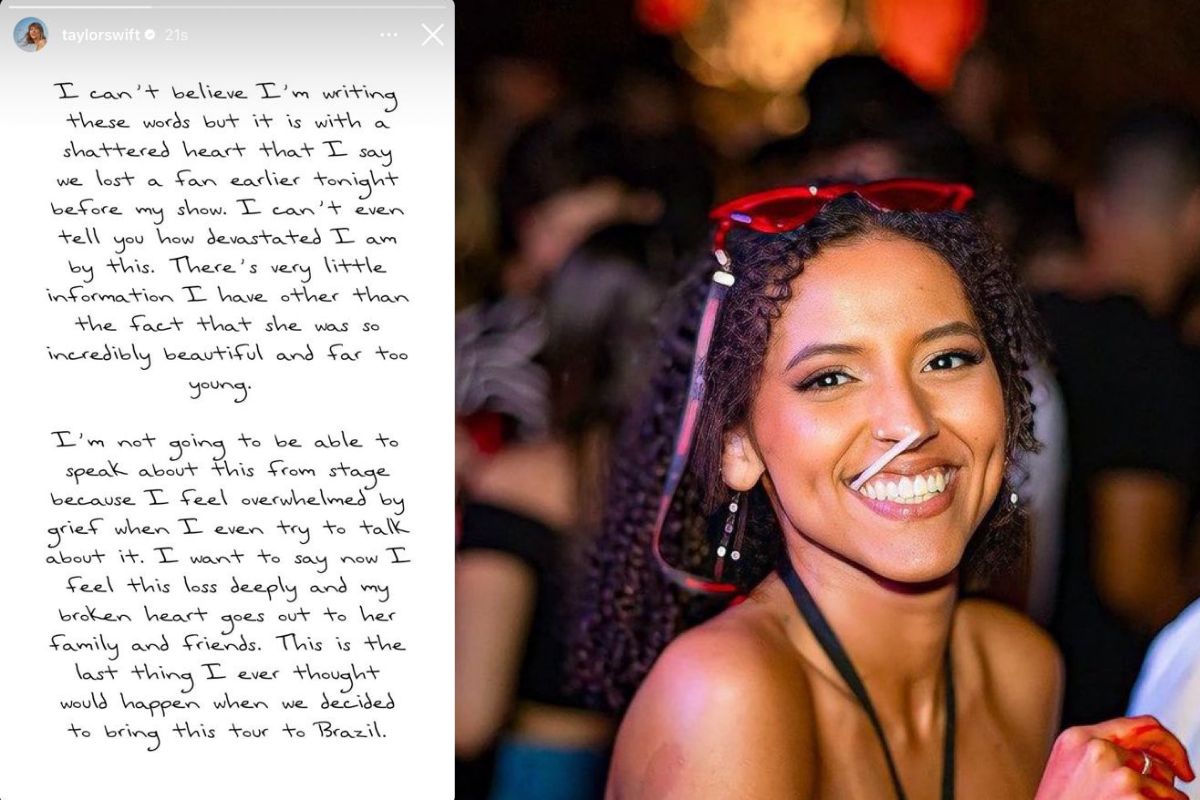 taylorswift 21s
I can't believe I'm writing
these words but it is with a
shattered heart that I say
we lost a fan earlier tonight
before my show. I can't even
tell you how devastated I am
by this. There's very little
information I have other than
the fact that she was so
incredibly beautiful and far too
young.
I'm not going to be able to
speak about this from stage
because I feel overwhelmed by
grief when I even try to talk
about it. I want to say now I
feel this loss deeply and my
broken heart goes out to her
family and friends. This is the
last thing I ever thought
would happen when we decided
to bring this tour to Brazil.